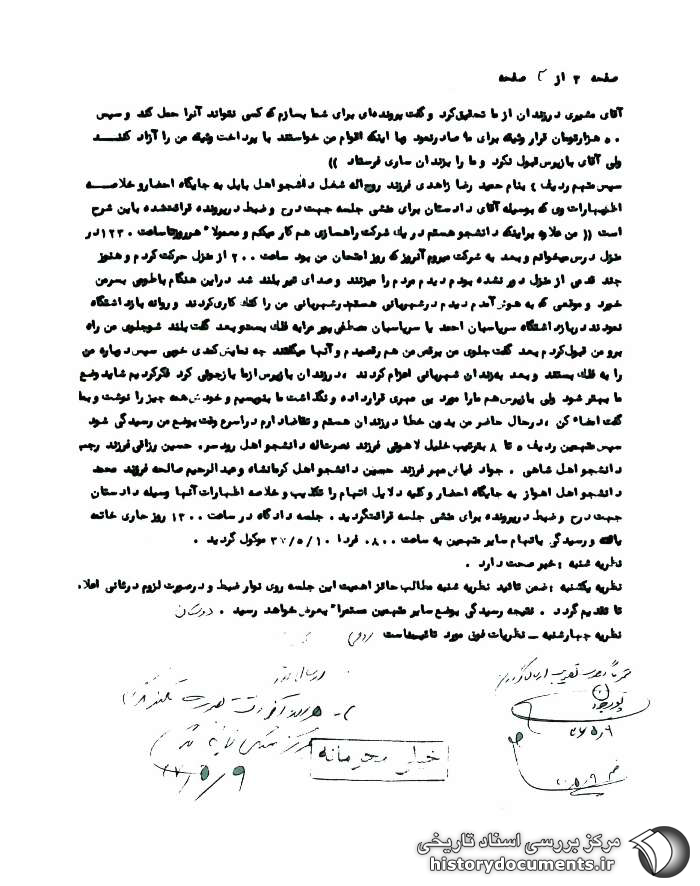 صفحه ۳ از ۴ صفحه
آقای مشیری درزندان از ما تحقیق کرد و گفت پرونده‌ای برای شما بسازم که کسی نتواند آنرا حمل کند و سپس
۵۰ هزارتومان قرار وثیقه برای ما صادرنمود وبا اینکه اقوام من خواستند با پرداخت وثیقه من را آزاد کنند
ولی آقای بازپرس قبول نکرد و ما را بزندان ساری فرستاد ))
سپس متهم ردیف ۴ بنام حمید رضا زاهدی فرزند روح‌اله شغل دانشجو اهل بابل به جایگاه احضار و خلاصه
اظهارات وی که بوسیله آقای دادستان برای منشی جلسه جهت درج و ضبط درپرونده قرائت‌شده باین شرح
است (( من علاوه براینکه دانشجو هستم در یک شرکت راهسازی هم کار میکنم و معمولا" هرروز تا ساعت ۱۲۳۰ در
منزل درس میخوانم و بعد به شرکت میروم آنروز که روز امتحان من بود ساعت ۲۰۰ از منزل حرکت کردم و هنوز
چند قدمی از منزل دور نشده بودم دیدم مردم را میزنند و صدای تیر بلند شد دراین هنگام باطومی بسرمن
خورد و موقعی که به هوش آمدم دیدم درشهربانی هستم درشهربانی من را کتک کاری کردند و روانه بازداشتگاه
نمودند دربازداشتگاه سرپاسبان احمد با سرپاسبان مصطفی پور مرا به فلک بستند و بعد گفت بلند شو جلوی من راه
برو من قبول کردم بعد گفت جلوی من برقص من هم رقصیدم و آنها میگفتند چه نمایش کمدی خوبی سپس دوباره من
را به فلک بستند و بعد به زندان شهربانی اعزام کردند ، درزندان بازپرس ازما بازجوئی کرد فکرکردیم شاید وضع
ما بهتر شود ولی بازپرس هم مارا مورد بی مهری قرارداده و نگذاشت ما بنویسیم و خودش همه چیز را نوشت و بما
گفت امضاء کن ، درحال حاضر من بدون خطا درزندان هستم و تقاضا دارم دراسرع وقت بوضع من رسیدگی شود
سپس متهمین ردیف ۵ تا ۸ بترتیب خلیل لاهوتی فرزند نصرت‌اله دانشجو اهل رودسر، حسین رزاقی فرزند رجب
دانشجو اهل شاهی ، جواد فیاض مهر فرزند حسین دانشجو اهل کرمانشاه و عبدالرحیم صالحه فرزند محمد
دانشجو اهل اهواز به جایگاه احضار و کلیه دلایل اتهام را تکذیب و خلاصه اظهارات آنها وسیله دادستان
جهت درج و ضبط درپرونده برای منشی جلسه قرائت‌گردید . جلسه دادگاه در ساعت ۱۳۰۰ روز جاری خاتمه
یافته و رسیدگی باتهام سایر متهمین به ساعت ۰۸۰۰ فردا ۳۷/۵/۱۰ موکول گردید .
نظریه شنبه : خبر صحت دارد .
نظریه یکشنبه : ضمن تائید نظریه شنبه مطالب حائز اهمیت این جلسه روی نوار ضبط و درصورت لزوم درثانی اعلام
تا تقدیم گردد . نتیجه رسیدگی بوضع سایر متهمین مستمرا" بعرض خواهد رسید .
نظریه چهارشنبه ــ نظریات فوق مورد تائیداست
۳۷/۵/۹
خیلی محرمانه
مرکز بررسی اسناد تاریخی
historydocuments.ir